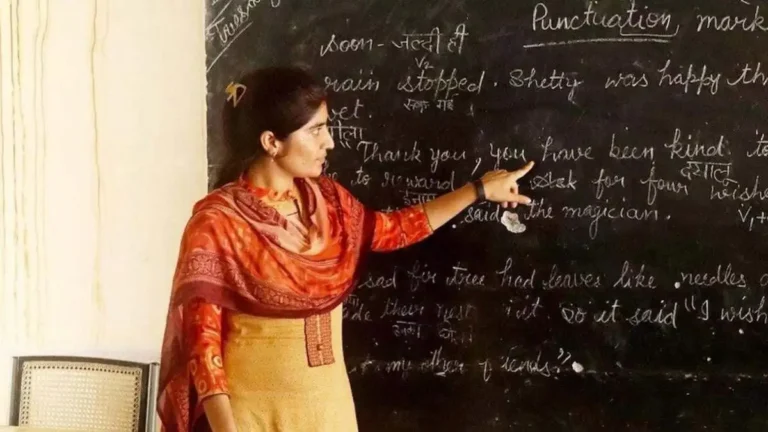 Punctuation, mark
soon - जल्दी ही
V2
rain stopped. Shetty was happy th
रूक गई
et.
गीला
"Thank you, you have been kind to
दयालु
to reward. Ask for four wishe
ईनाम
said the magician. V1+
sad fir tree had leaves like needles
their nest in it. So it said "I wish
my other friends".